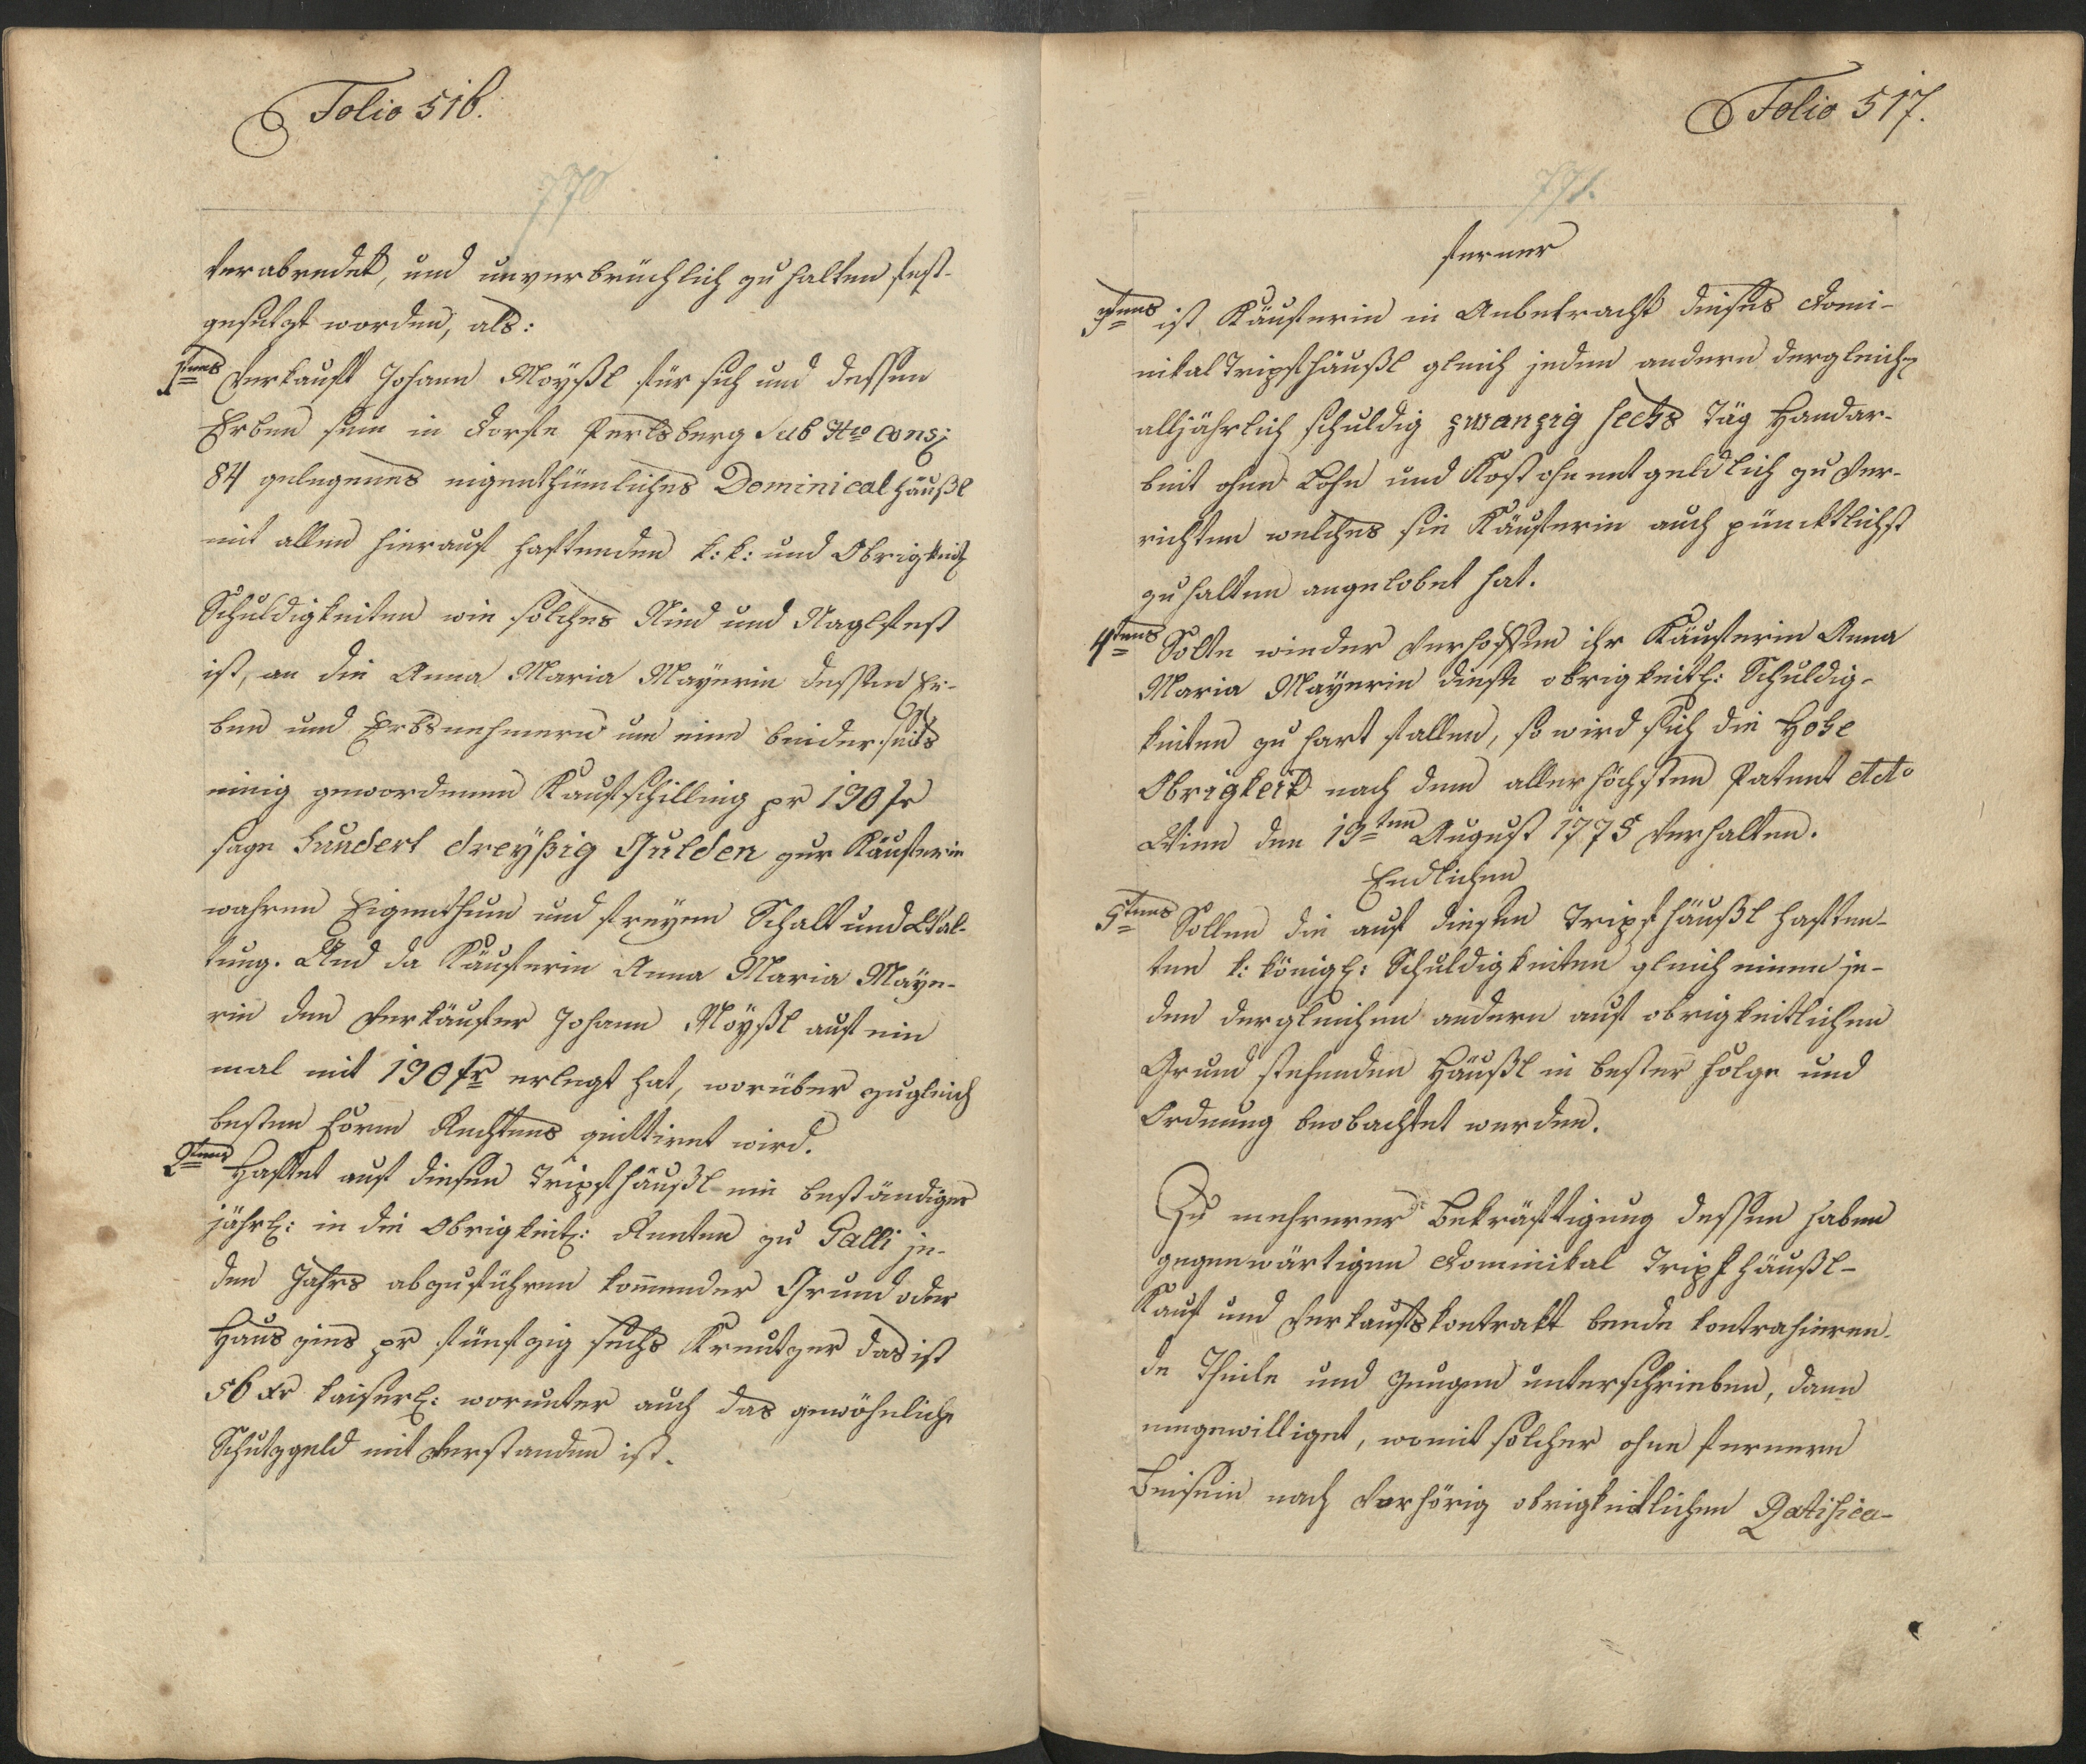 Folio 516.
770
verabredet, und unverbrüchlich zu halten fest-
gesetzt worden, als:
1tens Verkauft Johann Moyßl für sich und dessen
Erben sein in Dorfe Perlsberg Sub Nro Cons:
84 gelegenes eigenthümliches Dominicalhäußl
mit allen hierauf haftenden k: k: und Obrigkeitl:
Schuldigkeiten wie solches Nied und Naglfest
ist, an die Anna Maria Mayerin dessen Er-
ben und Erbsnehmern um einen beiderseits
einig gewordenen Kaufschilling pr 130 fr
sage Hundert dreyßig Gulden zur Käuferin
wahren Eigenthum und freyen Schalt und Wal-
tung. Und da Käuferin Anna Maria Maye-
rin dem Verkäufer Johann Moyßl auf ein
mal mit 130 fr erlegt hat, worüber zugleich
besten Form Rechtens quittiret wird.
2tens Haftet auf diesen Tripfhäußl ein beständiger
jährl: in die Obrigkeitl: Renten zu Galli je-
den Jahrs abzuführen kommender Grund oder
Hauszins pr fünfzig sechs Kreutzer das ist
56 xr kaiserl: worunter auch das gewöhnliche
Schutzgeld mit verstanden ist.
Folio 517.
771.
ferner
3tens ist Käuferin in Anbetracht dieses Domi-
nikal Tripfhäußl gleich jeden andern dergleichen
alljährlich schuldig zwanzig sechs Täg Handar-
beit ohne Lohn und Kost ohnentgeldlich zu ver-
richten welches sie Käuferin auch püncktlichst
zuhalten angelobet hat.
4tens Solte wieder verhoffen ihr Käuferin Anna
Maria Mayerin diese obrigkeitl: Schuldig-
keiten zu hart fallen, so wird sich die Hohe
Obrigkeit nach dem allerhöchsten Patent ddto
Wien den 13ten August 1775 verhalten.
Endlichen
5tens Sollen die auf diesen Tripfhäußl haften-
ten k: königl: Schuldigkeiten gleich einem je-
den dergleichen andern auf obrigkeitlichen
Grund stehenden Häußl in bester Folge und
Ordnung beobachtet werden.
Zu mehrerer Bekräftigung dessen haben
gegenwärtigen Dominikal Tripfhäußl-
Kauf und Verkaufskontrakt beede kontrahieren-
de Theile und Zeugen unterschrieben, dann
eingewilliget, womit solcher ohne fernern
Beisein nach Vorhörig obrigkeitlichen Ratifica-